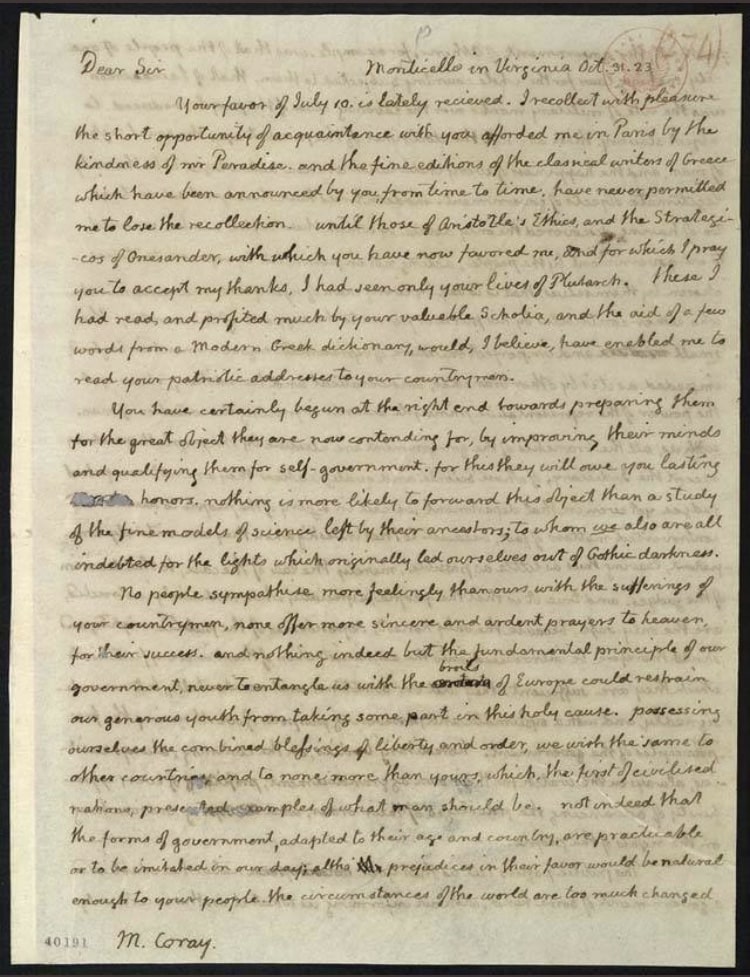 (274)
Dear Sir Monticello in Virginia Oct. 31. 23
Your favor of July 10. is lately recieved. I recollect with pleasure
the short opportunity of acquaintance with you afforded me in Paris by the
kindness of mr Paradise. and the fine editions of the classical writers of Greece
which have been announced by you, from time to time, have never permitted
me to lose the recollection. until those of Aristotle's Ethics, and the Strategi-
-cos of Onesander, with which you have now favored me, and for which I pray
you to accept my thanks, I had seen only your lives of Plutarch. These I
had read, and profited much by your valuable Scholia, and the aid of a few
words from a Modern Greek dictionary, would, I believe, have enabled me to
read your patriotic addresses to your countrymen.
You have certainly begun at the right end towards preparing them
for the great object they are now contending for, by improving their minds
and qualifying them for self-government. for this they will owe you lasting
honors. nothing is more likely to forward this object than a study
of the fine models of science left by their ancestors; to whom we also are all
indebted for the lights which originally led ourselves out of Gothic darkness.
No people sympathise more feelingly than ours with the sufferings of
your countrymen, none offer more sincere and ardent prayers to heaven,
for their success. and nothing indeed but the fundamental principle of our
government, never to entangle us with the broils of Europe could restrain
our generous youth from taking some part in this holy cause. possessing
ourselves the combined blessings of liberty and order, we wish the same to
other countries, and to none more than yours, which, the first of civilised
nations, presented examples of what man should be. not indeed that
the forms of government, adapted to their age and country, are practicable
or to be imitated in our day; altho' prejudices in their favor would be natural
enough to your people. the circumstances of the world are too much changed
40191 M. Coray.